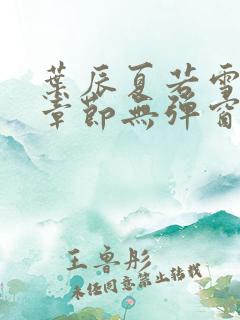 葉辰夏若雪
章節無彈窗
王魯彤
未经同意禁止转载